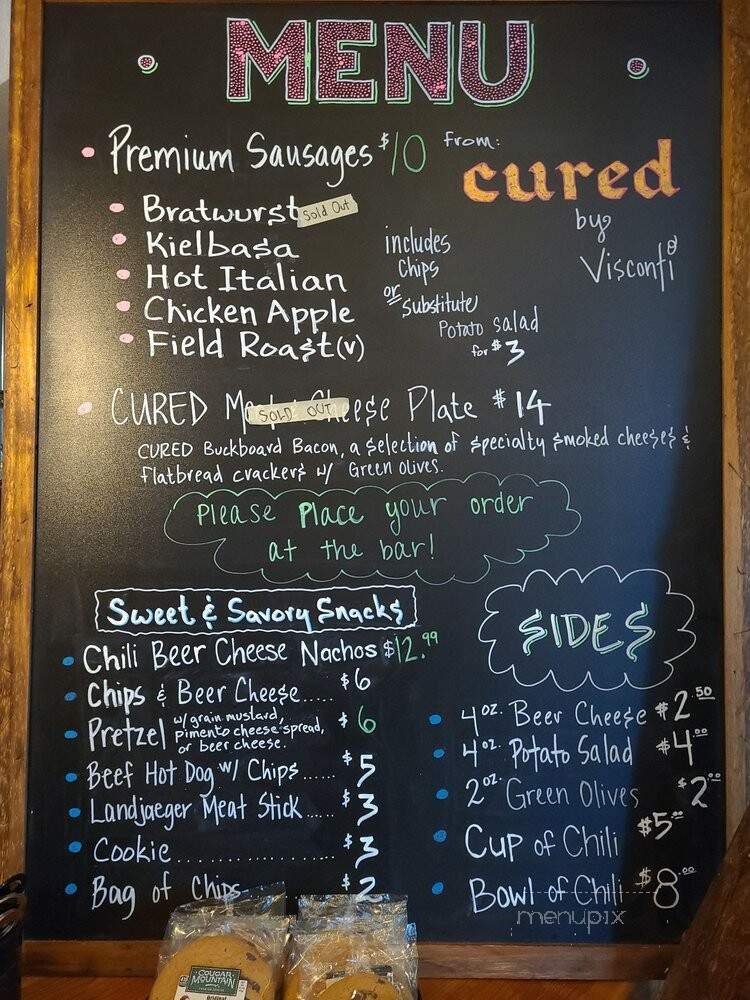 MENU
Premium Sausages $10 from:
cured
by
Visconti
Bratwurst Sold Out
Kielbasa
Hot Italian
Chicken Apple
Field Roast (v)
includes
chips
or substitute
Potato salad
for $3
CURED SOLD OUT Cheese Plate $14
CURED Buckboard Bacon, a selection of specialty smoked cheeses &
flatbread crackers w/ Green olives.
Please Place your order
at the bar!
Sweet & Savory Snacks
Chili Beer Cheese Nachos $12.99
Chips & Beer Cheese..... $6
Pretzel w/grain mustard, pimento cheese spread, or beer cheese. $6
Beef Hot Dog w/ Chips...... $5
Landjaeger Meat Stick..... $3
Cookie.................. $3
Bag of Chips $2
SIDES
4oz. Beer Cheese $2.50
4oz. Potato Salad $4.00
2oz. Green Olives $2.00
Cup of Chili $5.00
Bowl of Chili $8.00
menupix
COUGAR
MOUNTAIN